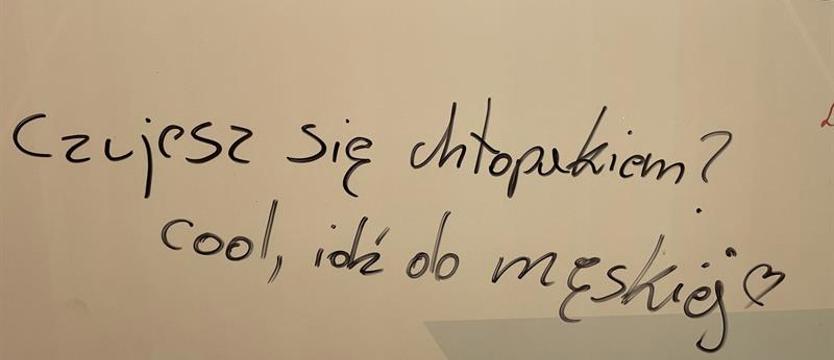 Czujesz się chłopakiem?
cool, idź do męskiej ♡